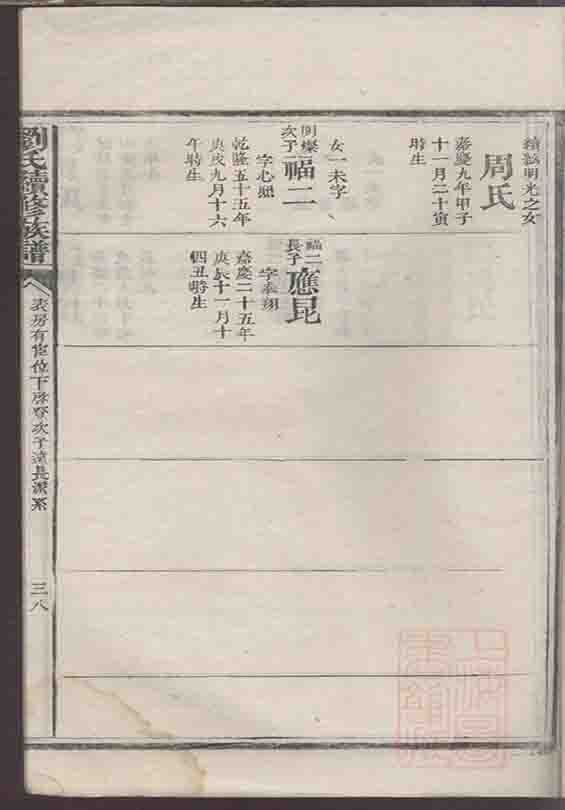 續配明光之女
周氏
嘉慶九年甲子
十一月二十寅
時生
女一未字
明燦
次子
福二
字心照
乾隆五十五年
庚戌九月十六
午時生
福二
長子
應昆
字奉翔
嘉慶二十五年
庚辰十一月十
四丑時生
劉氏續修族譜
長房有
位下
次子遠長派系
三八